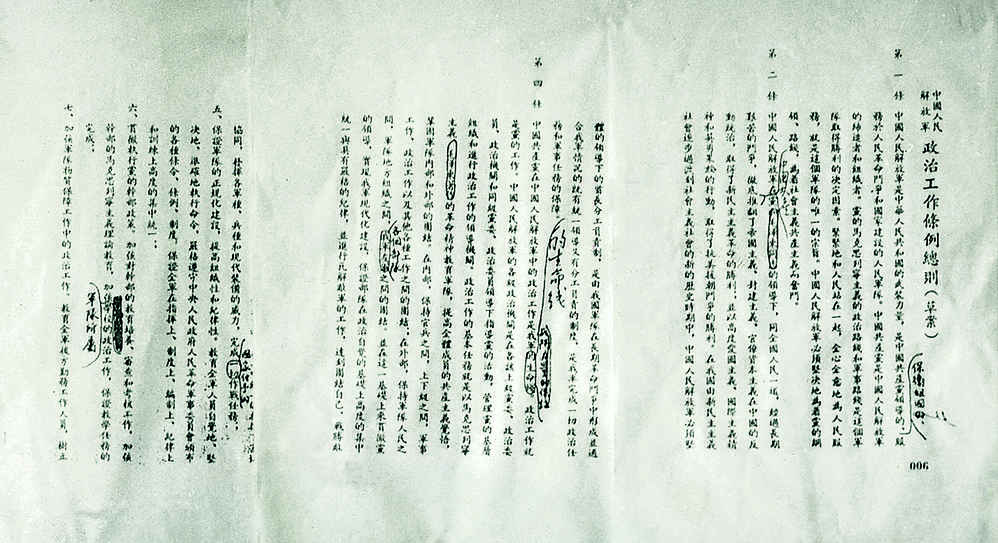 中國人民
解放軍 政治工作條例總則（草案）
保衛祖國的
第一條 中國人民解放軍是中華人民共和國的武裝力量，是中國共產黨領導的、服
務於人民革命鬥爭和國家建設的人民軍隊。中國共產黨是中國人民解放軍
的締造者和組織者。黨的馬克思列寧主義的政治路綫和軍事路綫是這個軍
隊取得勝利的決定因素。緊緊地和人民站在一起，全心全意地為人民服
務，就是這個軍隊的唯一的宗旨。中國人民解放軍必須堅決地為着黨的綱
領、路綫，為着社會主義共產主義而奮鬥。
第二條 中國人民解放軍在黨和毛澤東同志的領導下，同全國人民一塊，經過長期
艱苦的鬥爭，徹底推翻了帝國主義、封建主義、官僚資本主義在中國的反
動統治，取得了新民主主義革命的勝利；並以高度愛國主義、國際主義精
神和英勇果敢的行動，取得了抗美援朝鬥爭的勝利。在我國由新民主主義
社會逐步過渡到社會主義社會的新的歷史時期中，中國人民解放軍必須堅
體的領導下的首長分工負責制，是由我國軍隊在長期革命鬥爭中形成並適
合我軍情況的既有統一領導又有分工負責的制度，是我軍完成一切政治任
務和軍事任務的保障。
的生命綫
第四條 中國共產黨在中國人民解放軍中的政治工作是我軍的生命綫。政治工作就
是黨的工作。中國人民解放軍的各級政治機關是在各該上級黨委、政治委
員、政治機關和同級黨委、政治委員領導下指導黨的活動、管理黨的基層
組織和進行政治工作的領導機關。政治工作的基本任務就是以馬克思列寧
主義、毛澤東同志的革命精神教育軍隊，提高全體成員的共產主義覺悟，
鞏固軍隊內部和外部的團結。在內部，保持官兵之間，上下級之間，軍事
工作、政治工作以及其他各種工作之間的團結；在外部，保持軍隊人民之
間、軍隊地方組織之間的團結，並在這一基礎上來貫徹黨
的領導，實現我軍現代化建設，保證部隊在政治自覺的基礎上高度的集中
統一與具有嚴格的紀律，並進行瓦解敵軍的工作，達到團結自己、戰勝敵
協同，發揮各軍種、兵種和現代裝備的威力，完成作戰任務；
五、保證軍隊的正規化建設，提高組織性和紀律性。教育全軍人員自覺地、堅
決地、準確地執行命令，嚴格遵守中央人民政府人民革命軍事委員會頒布
的各種條令、條例、制度，保證全軍在指揮上、制度上、編制上、紀律上
和訓練上高度的集中統一；
六、貫徹執行黨的幹部政策，加強對幹部的教育培養、審查和考核工作，加強
幹部的馬克思列寧主義理論教育，加強學校的政治工作，保證教學任務的
完成；
軍隊所屬
七、加強軍隊物質保障工作中的政治工作，教育全軍後方勤務工作人員，樹立
006